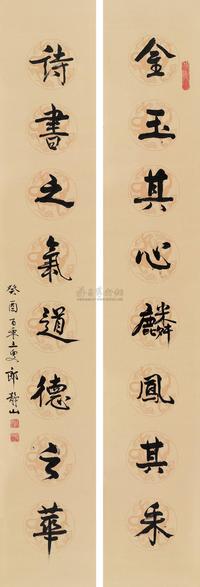 金玉其心麟鳳其采
詩書之氣道德之華
癸酉百零二叟郎靜山